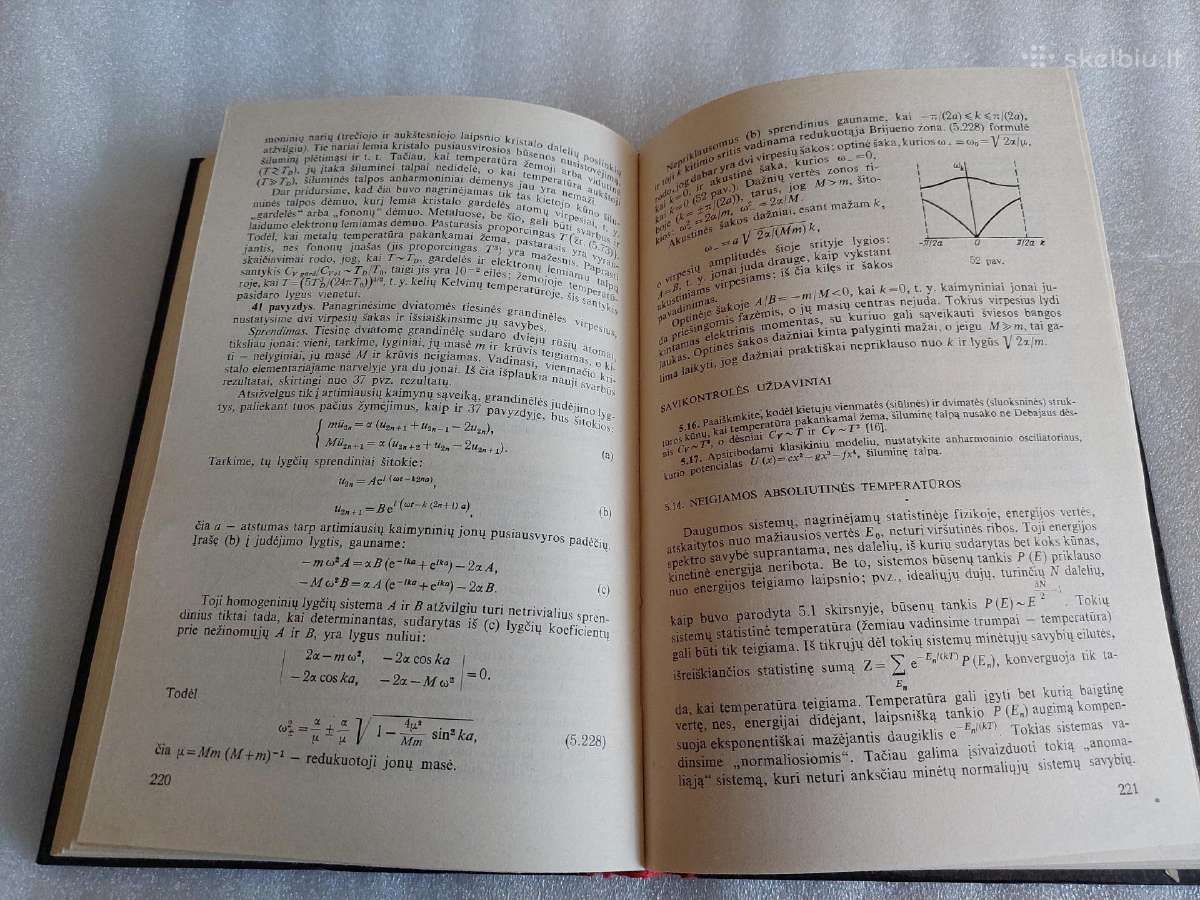 moninių narių (trečiojo ir aukštesniojo laipsnio kristalo dalelių poslinkių
atžvilgiu). Tie nariai lemia kristalo pusiausvirosios būsenos nusistovėjimą,
šiluminį plėtimąsi ir t. t. Tačiau, kai temperatūra žemoji arba vidurinė
(T≳T_D), jų įtaka šiluminei talpai nedidelė, o kai temperatūra aukštoji
(T≫T_D), šiluminės talpos anharmoniniai dėmenys jau yra nemaži.
Dar pridursime, kad čia buvo nagrinėjamas tik tas kietojo kūno šilu-
minės talpos dėmuo, kurį lemia kristalo gardelės atomų virpesiai, t. y.
„gardelės“ arba „fononų“ dėmuo. Metaluose, be šio, gali būti svarbus ir
laidumo elektronų lemiamas dėmuo. Pastarasis proporcingas T (žr. (5.75)).
Todėl, kai metalų temperatūra pakankamai žema, pastarasis yra vyrau-
jantis, nes fononų įnašas (jis proporcingas T³) yra mažesnis. Paprasti
skaičiavimai rodo, jog, kai T~T_D, gardelės ir elektronų lemiamų talpų
santykis C_V gard/C_V el ~ T_D/T_0, taigi jis yra 10⁻² eilės; žemojoje temperatū-
roje, kai T=(5T_D³/(24πT_0))^{1/2}, t. y. kelių Kelvinų temperatūroje, šis santykis
pasidaro lygus vienetui.
41 pavyzdys. Panagrinėsime dviatomės tiesinės grandinėlės virpesius,
nustatysime dvi virpesių šakas ir išsiaiškinsime jų savybes.
Sprendimas. Tiesinę dviatomę grandinėlę sudaro dviejų rūšių atomai,
tiksliau jonai: vieni, tarkime, lyginiai, jų masė m ir krūvis teigiamas, o ki-
ti — nelyginiai, jų masė M ir krūvis neigiamas. Vadinasi, vienmačio kri-
stalo elementariajame narvelyje yra du jonai. Iš čia išplaukia nauji svarbūs
rezultatai, skirtingi nuo 37 pvz. rezultatų.
Atsižvelgus tik į artimiausių kaimynų sąveiką, grandinėlės judėjimo lyg-
tys, paliekant tuos pačius žymėjimus, kaip ir 37 pavyzdyje, bus šitokios:
{ mü_{2n} = α (u_{2n+1} + u_{2n−1} − 2u_{2n}),
Mü_{2n+1} = α (u_{2n+2} + u_{2n} − 2u_{2n+1}). (a)
Tarkime, tų lygčių sprendiniai šitokie:
u_{2n} = Ae^{i (ωt−k2na)},
u_{2n+1} = Be^{i (ωt−k (2n+1) a)}, (b)
čia a — atstumas tarp artimiausių kaimyninių jonų pusiausvyros padėčių.
Įrašę (b) į judėjimo lygtis, gauname:
−mω²A = αB (e^{−ika} + e^{ika}) − 2αA,
−Mω²B = αA (e^{−ika} + e^{ika}) − 2αB. (c)
Toji homogeninių lygčių sistema A ir B atžvilgiu turi netrivialius spren-
dinius tiktai tada, kai determinantas, sudarytas iš (c) lygčių koeficientų
prie nežinomųjų A ir B, yra lygus nuliui:
| 2α−mω², −2α cos ka |
| −2α cos ka, −2α−Mω² | = 0.
Todėl
ω²_± = α/μ ± α/μ √(1 − 4μ²/Mm sin² ka), (5.228)
čia μ=Mm (M+m)⁻¹ — redukuotoji jonų masė.
220
Nepriklausomus (b) sprendinius gauname, kai −π/(2a)≤k≤π/(2a),
ir toji k kitimo sritis vadinama redukuotąja Brijueno zona. (5.228) formulė
rodo, jog dabar yra dvi virpesių šakos: optinė šaka, kurios ω_−=ω_0=√2α/μ,
kai k=0, ir akustinė šaka, kurios ω_−=0,
kai k=0 (52 pav.). Dažnių vertės zonos ri-
boje (k=±π/(2a)), tarus, jog M>m, šito-
kios: ω²_+=2α/m, ω²_−=2α/M.
Akustinės šakos dažniai, esant mažam k,
ω_−=a√2α/(Mm) k,
o virpesių amplitudės šioje srityje lygios:
A=B, t. y. jonai juda drauge, kaip vykstant
akustiniams virpesiams; iš čia kilęs ir šakos
pavadinimas.
ω_k
−π/2a 0 π/2a k
52 pav.
Optinėje šakoje A/B=−m/M<0, kai k=0, t. y. kaimyniniai jonai ju-
da priešingomis fazėmis, o jų masių centras nejuda. Tokius virpesius lydi
kintamas elektrinis momentas, su kuriuo gali sąveikauti šviesos bangos
laukas. Optinės šakos dažniai kinta palyginti mažai, o jeigu M≫m, tai ga-
lima laikyti, jog dažniai praktiškai nepriklauso nuo k ir lygūs √2α/m.
SAVIKONTROLĖS UŽDAVINIAI
5.16. Paaiškinkite, kodėl kietųjų vienmatės (siūlinės) ir dvimatės (sluoksninės) struk-
tūros kūnų, kai temperatūra pakankamai žema, šiluminę talpą nusako ne Debajaus dės-
nis C_V~T³, o dėsniai C_V~T ir C_V~T² [16].
5.17. Apsiribodami klasikiniu modeliu, nustatykite anharmoninio osciliatoriaus,
kurio potencialas U (x)=cx²−gx³−fx⁴, šiluminę talpą.
5.14. NEIGIAMOS ABSOLIUTINĖS TEMPERATŪROS
Daugumos sistemų, nagrinėjamų statistinėje fizikoje, energijos vertės,
atskaitytos nuo mažiausios vertės E_0, neturi viršutinės ribos. Toji energijos
spektro savybė suprantama, nes dalelių, iš kurių sudarytas bet koks kūnas,
kinetinė energija neribota. Be to, sistemos būsenų tankis P (E) priklauso
nuo energijos teigiamo laipsnio; pvz., idealiųjų dujų, turinčių N dalelių,
kaip buvo parodyta 5.1 skirsnyje, būsenų tankis P(E)~E^{3N/2−1}. Tokių
sistemų statistinė temperatūra (žemiau vadinsime trumpai — temperatūra)
gali būti tik teigiama. Iš tikrųjų dėl tokių sistemų minėtųjų savybių eilutės,
išreiškiančios statistinę sumą Z = ∑_{E_n} e^{−E_n/(kT)} P (E_n), konverguoja tik ta-
da, kai temperatūra teigiama. Temperatūra gali įgyti bet kurią baigtinę
vertę, nes, energijai didėjant, laipsnišką tankio P (E_n) augimą kompen-
suoja eksponentiškai mažėjantis daugiklis e^{−E_n/(kT)}. Tokias sistemas va-
dinsime „normaliosiomis“. Tačiau galima įsivaizduoti tokią „anoma-
liąją“ sistemą, kuri neturi anksčiau minėtų normaliųjų sistemų savybių.
221
skelbiu.lt